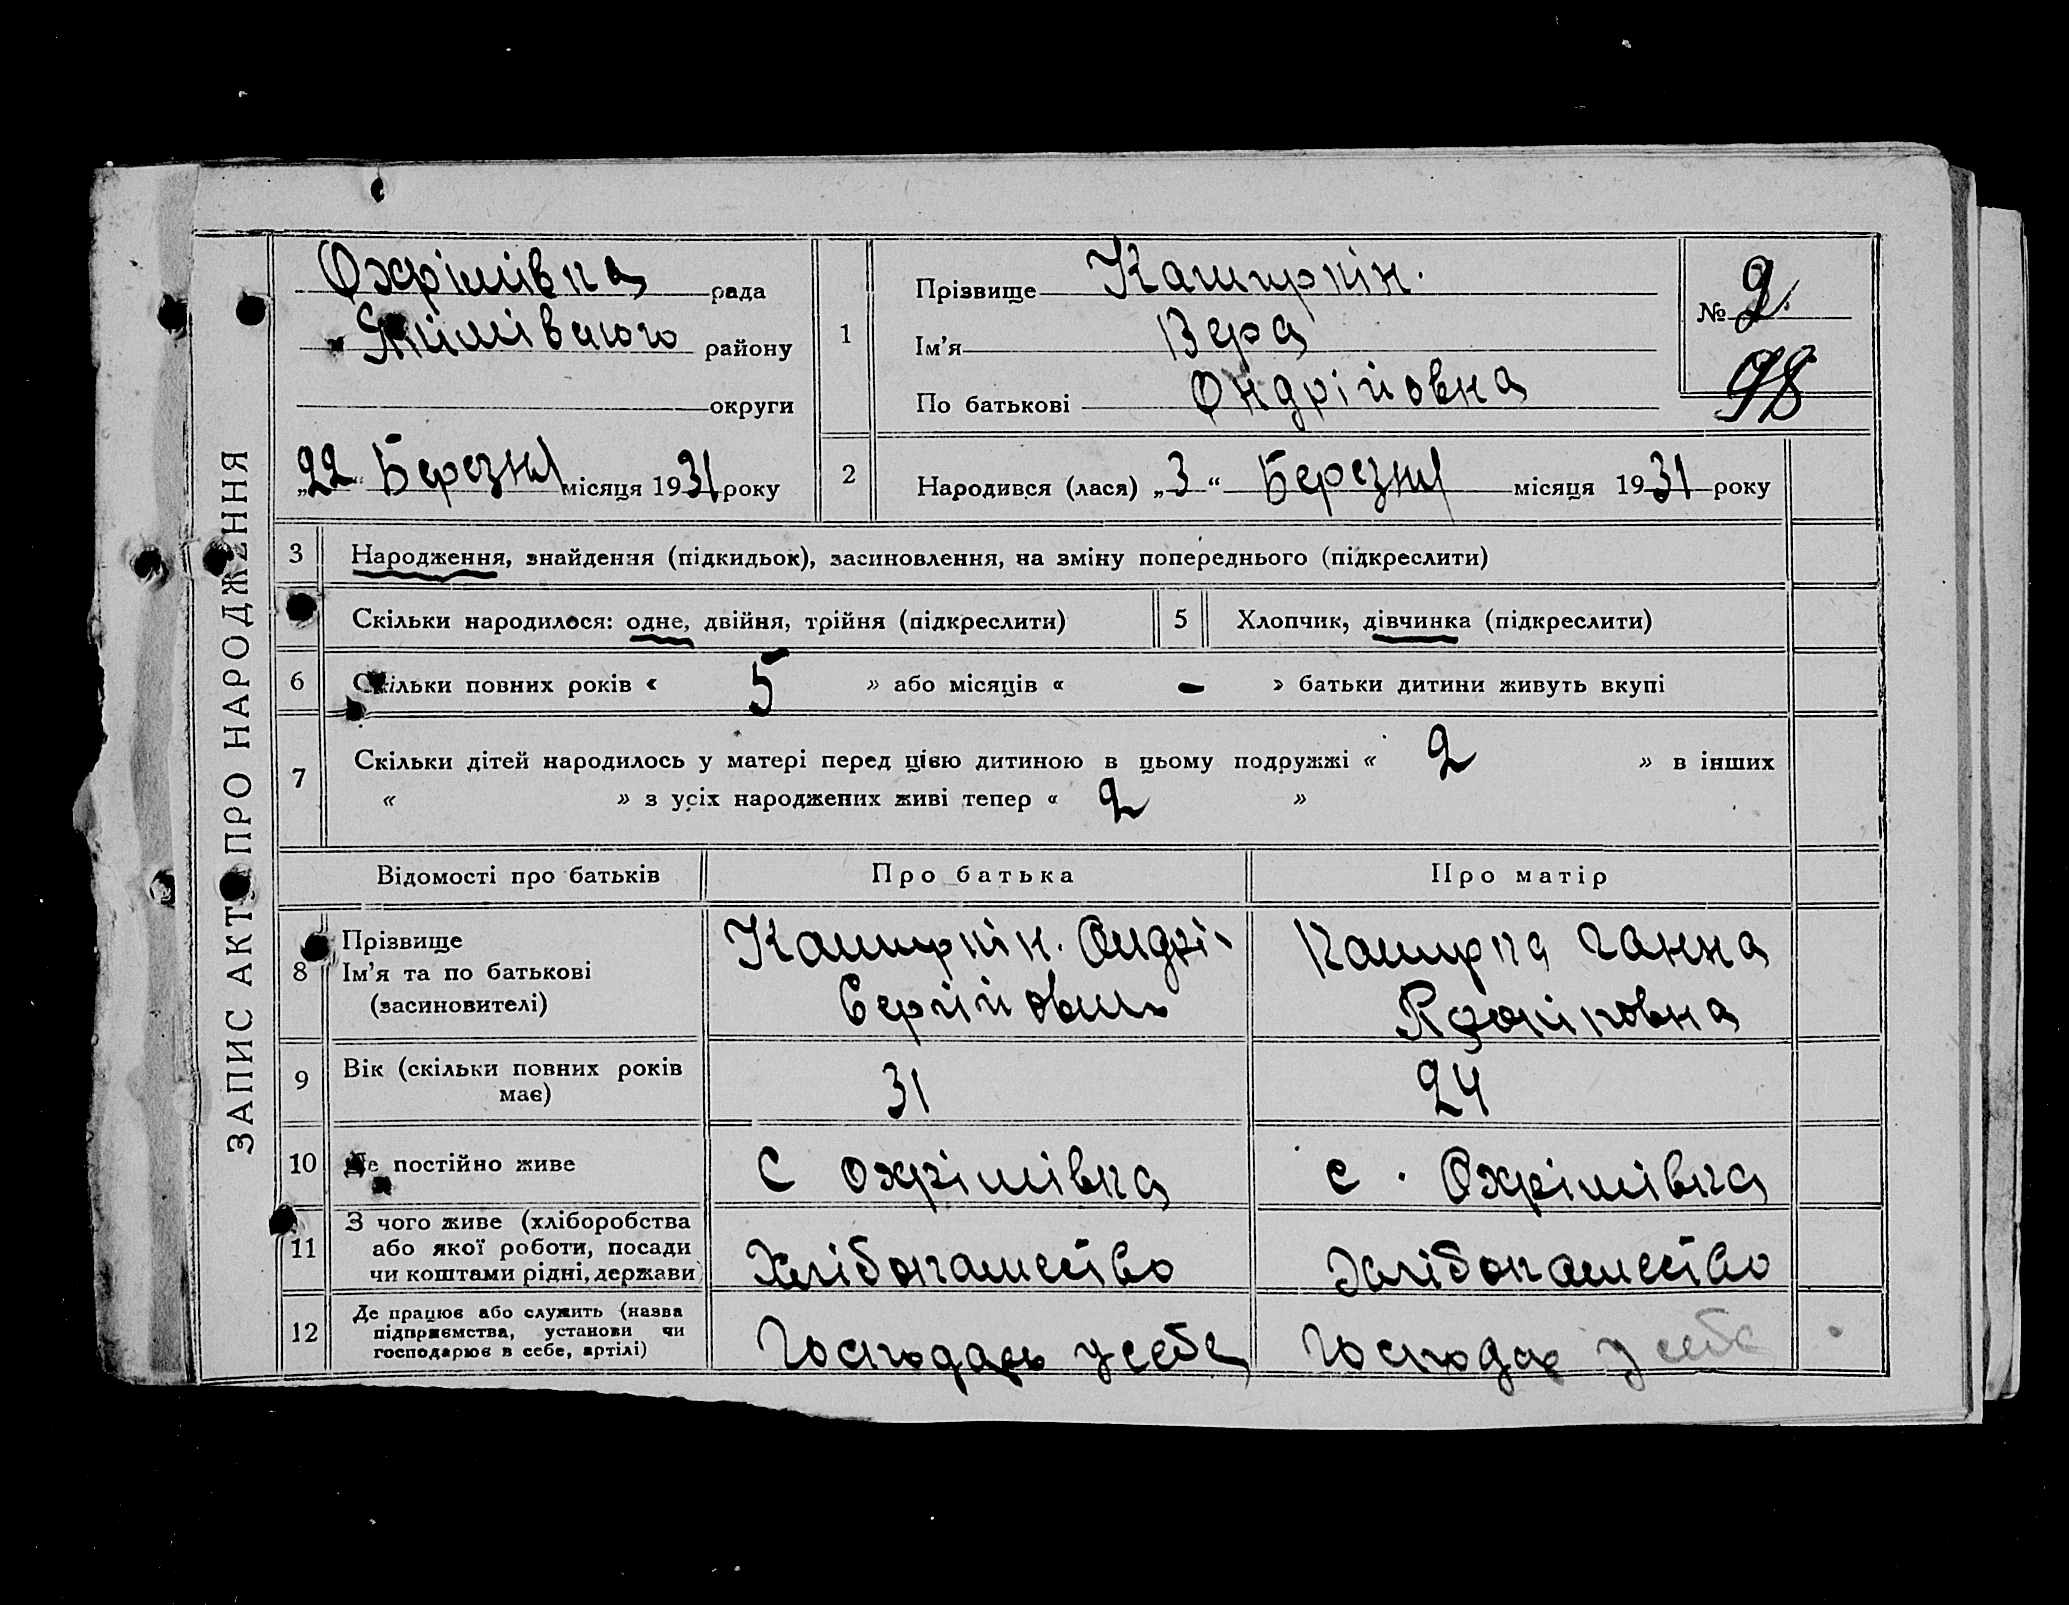 ЗАПИС АКТУ ПРО НАРОДЖЕННЯ
Охрімівка рада
Якімівського району
округи
„22“ Березня місяця 1931 року
1
Прізвище Каширкін.
Ім'я Вера
По батькові Ондрійовна
№ 2
98
2
Народився (лася) „3“ Березня місяця 1931 року
3 Народження, знайдення (підкидьок), засиновлення, на зміну попереднього (підкреслити)
Скільки народилося: одне, двійня, трійня (підкреслити) 5 Хлопчик, дівчинка (підкреслити)
6 Скільки повних років « 5 » або місяців « - » батьки дитини живуть вкупі
7 Скільки дітей народилось у матері перед цією дитиною в цьому подружжі « 2 » в інших
« » з усіх народжених живі тепер « 2 »
Відомості про батьків Про батька Про матір
8 Прізвище
Ім'я та по батькові
(засиновителі)
Каширкін. Ондрі
Сергійович
Каширка Ганна
9 Вік (скільки повних років
має)
31
24
10 Де постійно живе С Охрімівка с. Охрімівка
11 З чого живе (хліборобства
або якої роботи, посади
чи коштами рідні, держави)
Хлібопашество
Хлібопашество
12 Де працює або служить (назва
підприємства, установи чи
господарює в себе, артілі)
Господарь у себе
Господар у себе